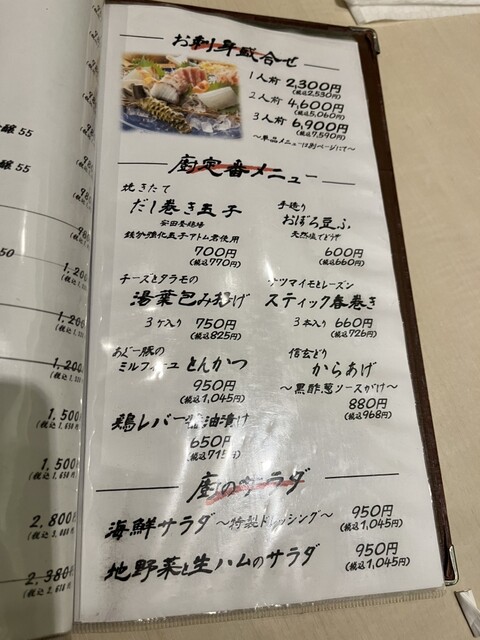 お刺身盛合せ
1人前 2,300円
(税込2,530円)
2人前 4,600円
(税込5,060円)
3人前 6,900円
(税込7,590円)
〜単品メニューは別ページにて〜
廚定番メニュー
焼きたて
だし巻き玉子
安田養鶏場
鉄分強化玉子アトム君使用
700円
(税込770円)
手造り
おぼろ豆ふ
天然塩でどうぞ
600円
(税込660円)
チーズとタラモの
湯葉包み揚げ
3ケ入り 750円
(税込825円)
サツマイモとレーズン
スティック春巻き
3本入り 660円
(税込726円)
あぐー豚の
ミルフィーユ とんかつ
950円
(税込1,045円)
信玄どり
からあげ
〜黒酢葱ソースがけ〜
880円
(税込968円)
鶏レバー醤油漬け
650円
(税込715円)
廚のサラダ
海鮮サラダ〜特製ドレッシング〜 950円
(税込1,045円)
地野菜と生ハムのサラダ 950円
(税込1,045円)
醸 55
醸 55
50
1,200
1,200
1,200
1,500
(税込1,650
1,500
(税込1,650
2,800
(税込3,080
2,380